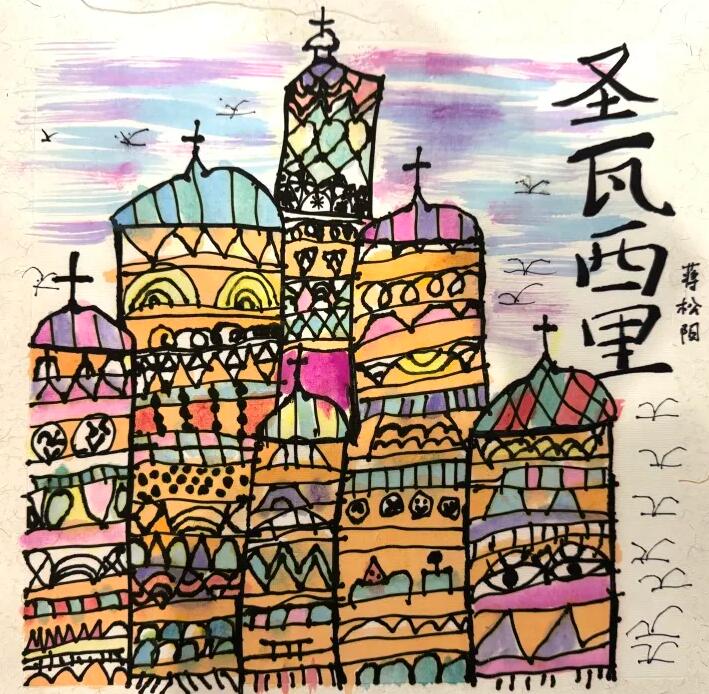 圣瓦西里
蒋松阳